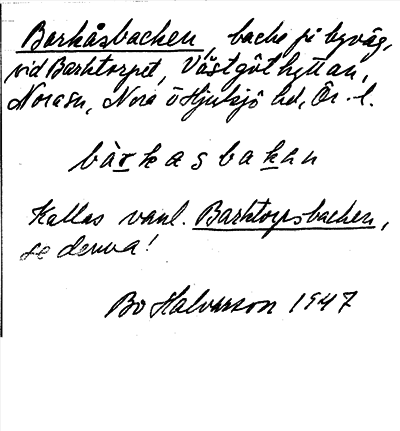 Barkåsbacken, backe på byväg,
vid Barktorpet, Västgöthyttan,
Nora sn, Nora o Hjulsjö hd, Ör. l.
bàrkasbakan
Kallas vanl. Barktorpsbacken,
se denna!
Bo Halvarson 1947